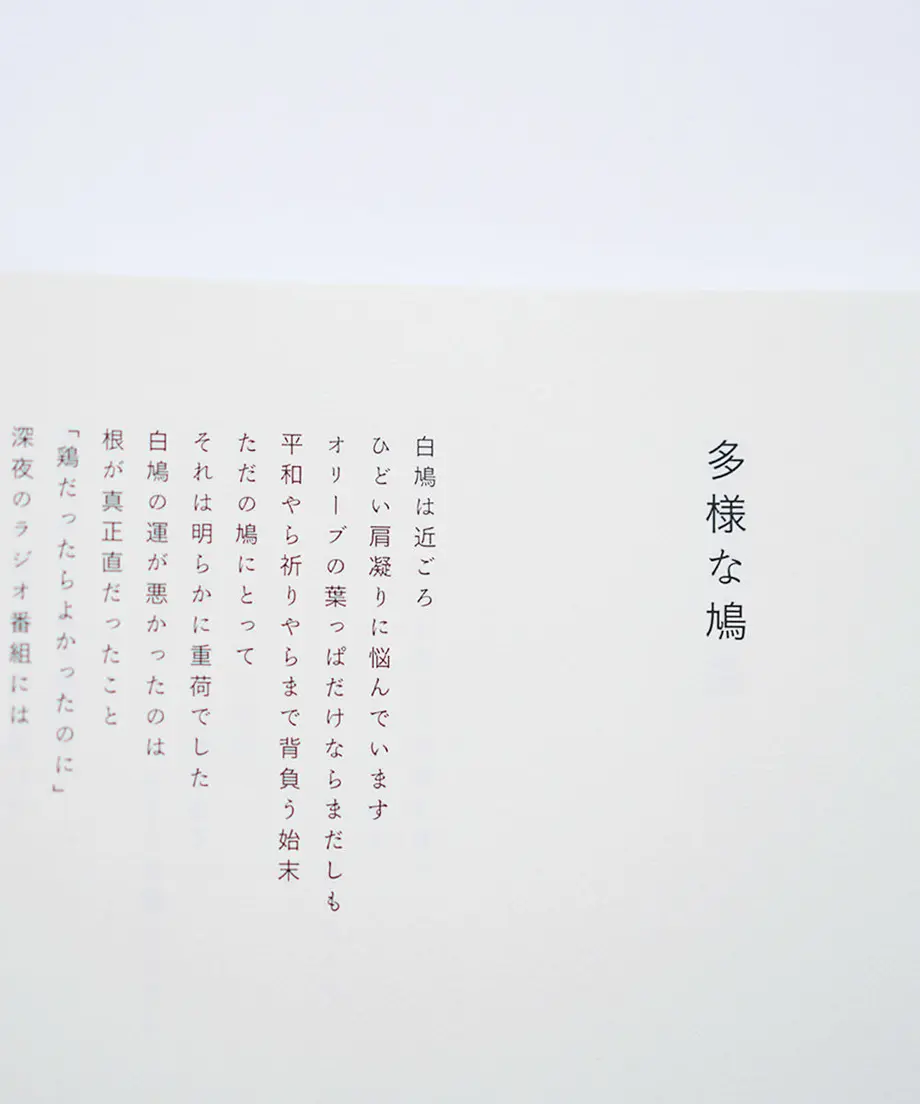 多様な鳩
白鳩は近ごろ
ひどい肩凝りに悩んでいます
オリーブの葉っぱだけならまだしも
平和やら祈りやらまで背負う始末
ただの鳩にとって
それは明らかに重荷でした
白鳩の運が悪かったのは
根が真正直だったこと
「鶏だったらよかったのに」
深夜のラジオ番組には